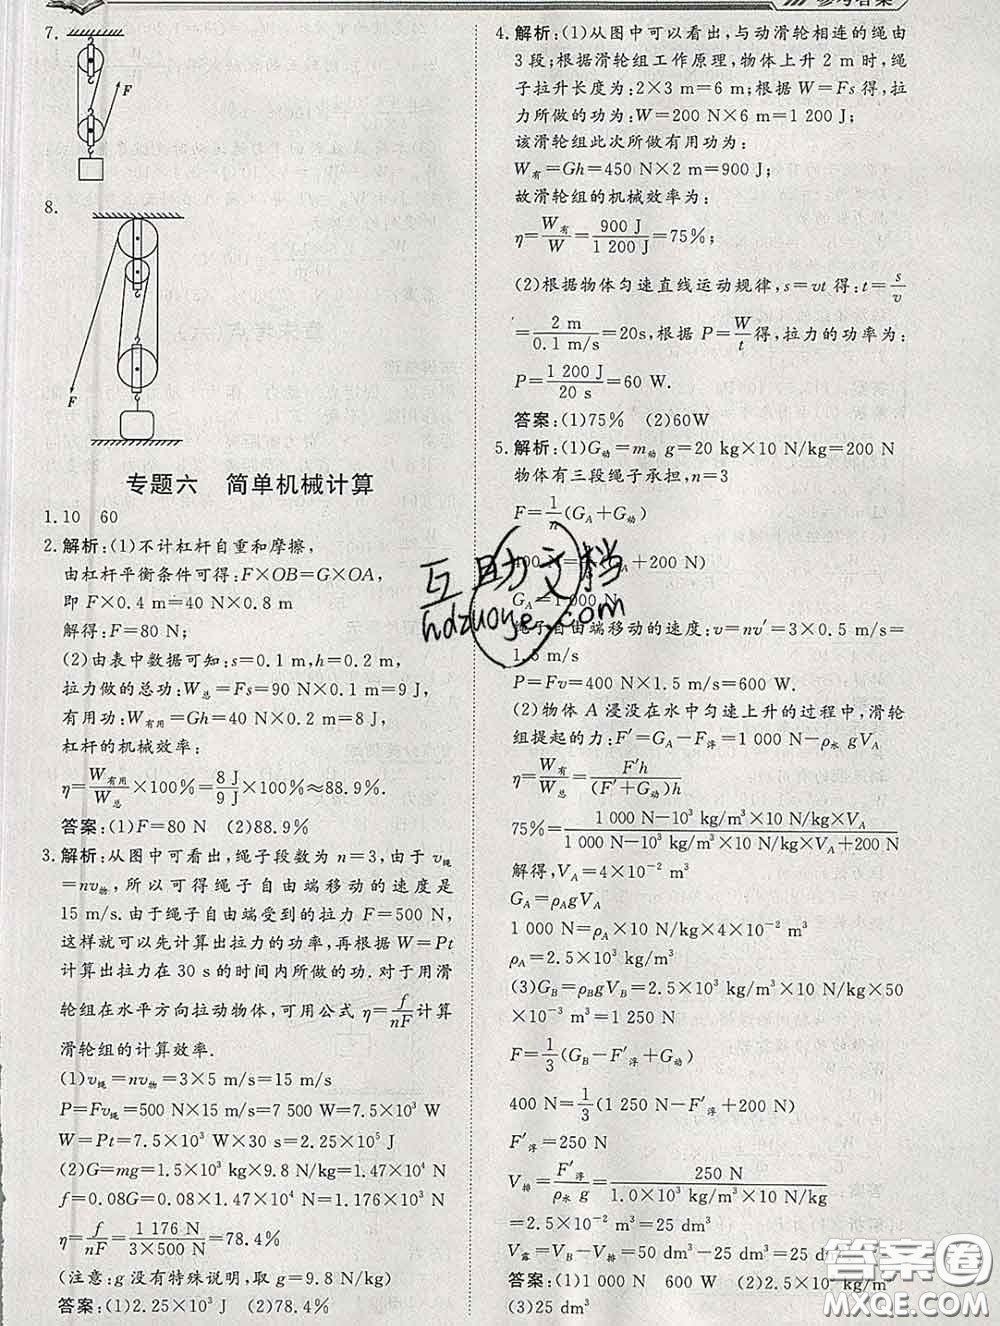 参考答案
7.
F
8.
F
专题六　简单机械计算
1.10　60
2.解析:(1)不计杠杆自重和摩擦,
由杠杆平衡条件可得:F×OB=G×OA,
即 F×0.4 m=40 N×0.8 m
解得:F=80 N;
(2)由表中数据可知:s=0.1 m,h=0.2 m,
拉力做的总功:W总=Fs=90 N×0.1 m=9 J,
有用功:W有用=Gh=40 N×0.2 m=8 J,
杠杆的机械效率:
η=W有用/W总×100%=8 J/9 J×100%≈88.9%.
答案:(1)F=80 N　(2)88.9%
3.解析:从图中可看出,绳子段数为 n=3,由于 v绳
=nv物,所以可得绳子自由端移动的速度是
15 m/s.由于绳子自由端受到的拉力 F=500 N,
这样就可以先计算出拉力的功率,再根据 W=Pt
计算出拉力在 30 s 的时间内所做的功.对于用滑
轮组在水平方向拉动物体,可用公式 η=f/nF计算
滑轮组的计算效率.
(1)v绳=nv物=3×5 m/s=15 m/s
P=Fv绳=500 N×15 m/s=7 500 W=7.5×10³ W
W=Pt=7.5×10³ W×30 s=2.25×10⁵ J
(2)G=mg=1.5×10³ kg×9.8 N/kg=1.47×10⁴ N
f=0.08G=0.08×1.47×10⁴ N=1.176×10³ N
η=f/nF=1 176 N/3×500 N=78.4%
(注意:g 没有特殊说明,取 g=9.8 N/kg)
答案:(1)2.25×10⁵ J　(2)78.4%
4.解析:(1)从图中可以看出,与动滑轮相连的绳有
3 段;根据滑轮组工作原理,物体上升 2 m 时,绳
子拉升长度为:2×3 m=6 m;根据 W=Fs 得,拉
力所做的功为:W=200 N×6 m=1 200 J;
该滑轮组此次所做有用功为:
W有=Gh=450 N×2 m=900 J;
故滑轮组的机械效率为:
η=W有/W=900 J/1 200 J=75%;
(2)根据物体匀速直线运动规律,s=vt 得:t=s/v
=2 m/0.1 m/s=20s,根据 P=W/t得,拉力的功率为:
P=1 200 J/20 s=60 W.
答案:(1)75%　(2)60W
5.解析:(1)G动=m动 g=20 kg×10 N/kg=200 N
物体有三段绳子承担,n=3
F=1/n(GA+G动)
400 N=1/3(GA+200 N)
GA=1 000 N
绳子自由端移动的速度:v=nv′=3×0.5 m/s=
1.5 m/s
P=Fv=400 N×1.5 m/s=600 W.
(2)物体 A 浸没在水中匀速上升的过程中,滑轮
组提起的力:F′=GA−F浮=1 000 N−ρ水 gVA
η=W有/W总=F′h/(F′+G动)h
75%=1 000 N−10³ kg/m³×10 N/kg×VA/1 000 N−10³ kg/m³×10 N/kg×VA+200 N
解得,VA=4×10⁻² m³
GA=ρAgVA
1 000 N=ρA×10 N/kg×4×10⁻² m³
ρA=2.5×10³ kg/m³
(3)GB=ρBgVB=2.5×10³ kg/m³×10 N/kg×50
×10⁻³ m³=1 250 N
F=1/3(GB−F′浮+G动)
400 N=1/3(1 250 N−F′浮+200 N)
F′浮=250 N
V排=F′浮/ρ水 g=250 N/1.0×10³ kg/m³×10 N/kg
=2.5×10⁻² m³=25 dm³
V露=VB−V排=50 dm³−25 dm³=25 dm³
答案:(1)1 000 N　600 W　(2)2.5×10³ kg/m³
(3)25 dm³
互助文档
hdzuoye.com
答案圈
MXQE.COM